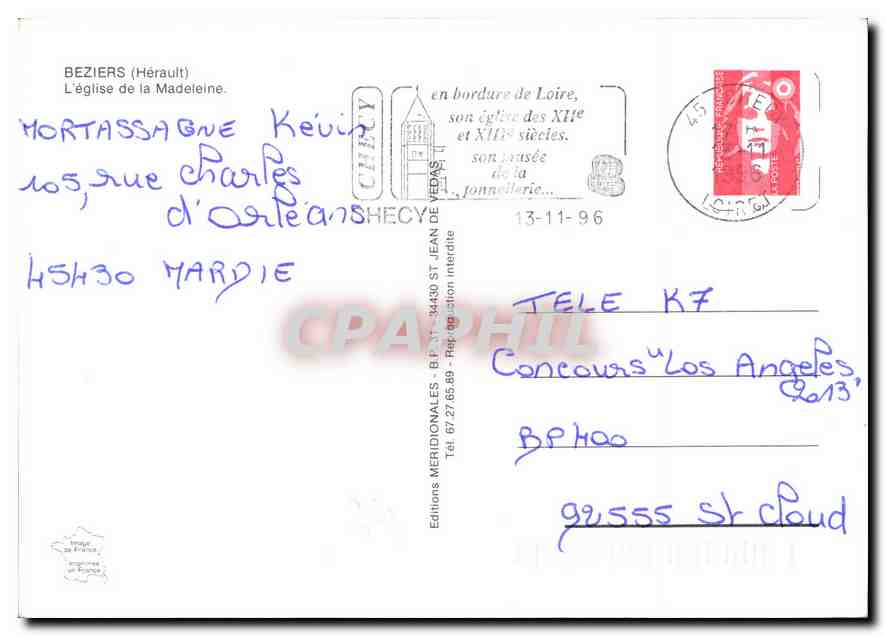 BEZIERS (Hérault)
L'église de la Madeleine.
MORTASSAGNE Kévin
105, rue Charles
d'Orléans
45430 MARDIE
CHECY
en bordure de Loire,
son église des XIIe
et XIIIe siècles.
son musée
de la
tonnellerie...
CHECY
13-11-96
45
LOIRET
RÉPUBLIQUE FRANÇAISE
LA POSTE
Editions MERIDIONALES - B.P. 31 - 34430 ST JEAN DE VEDAS
Tél. 67.27.65.89 - Reproduction interdite
CPAPHIL
TELE K7
Concours "Los Angeles
2013"
BP400
92555 St Cloud
image
de France
imprimée
en France